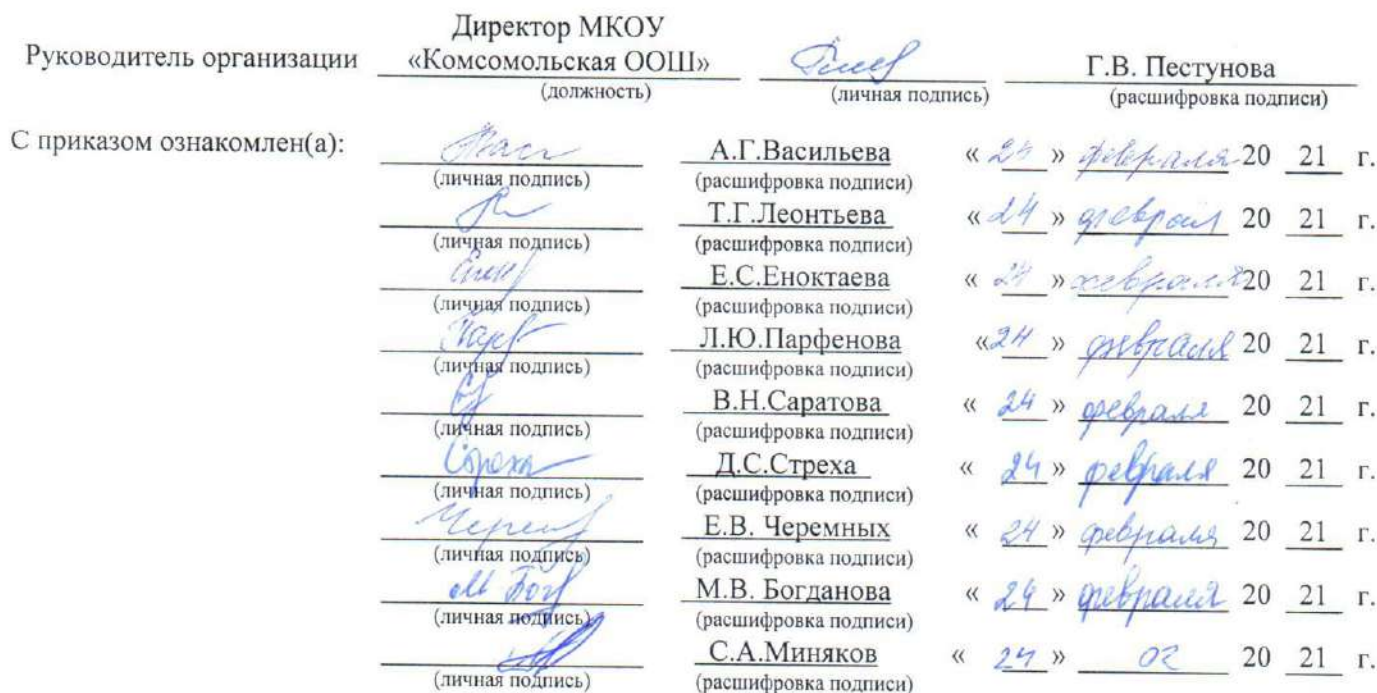 Директор МКОУ
Руководитель организации «Комсомольская ООШ» Г.В. Пестунова
(должность) (личная подпись) (расшифровка подписи)
С приказом ознакомлен(а): Вас А.Г.Васильева « 24 » февраля 20 21 г.
(личная подпись) (расшифровка подписи)
Т.Г.Леонтьева « 24 » феврал 20 21 г.
(личная подпись) (расшифровка подписи)
Е.С.Еноктаева « 24 » февраля 20 21 г.
(личная подпись) (расшифровка подписи)
Л.Ю.Парфенова « 24 » февраля 20 21 г.
(личная подпись) (расшифровка подписи)
В.Н.Саратова « 24 » февраля 20 21 г.
(личная подпись) (расшифровка подписи)
Д.С.Стреха « 24 » февраля 20 21 г.
(личная подпись) (расшифровка подписи)
Е.В. Черемных « 24 » февраля 20 21 г.
(личная подпись) (расшифровка подписи)
М.В. Богданова « 24 » февраля 20 21 г.
(личная подпись) (расшифровка подписи)
С.А.Миняков « 24 » 02 20 21 г.
(личная подпись) (расшифровка подписи)